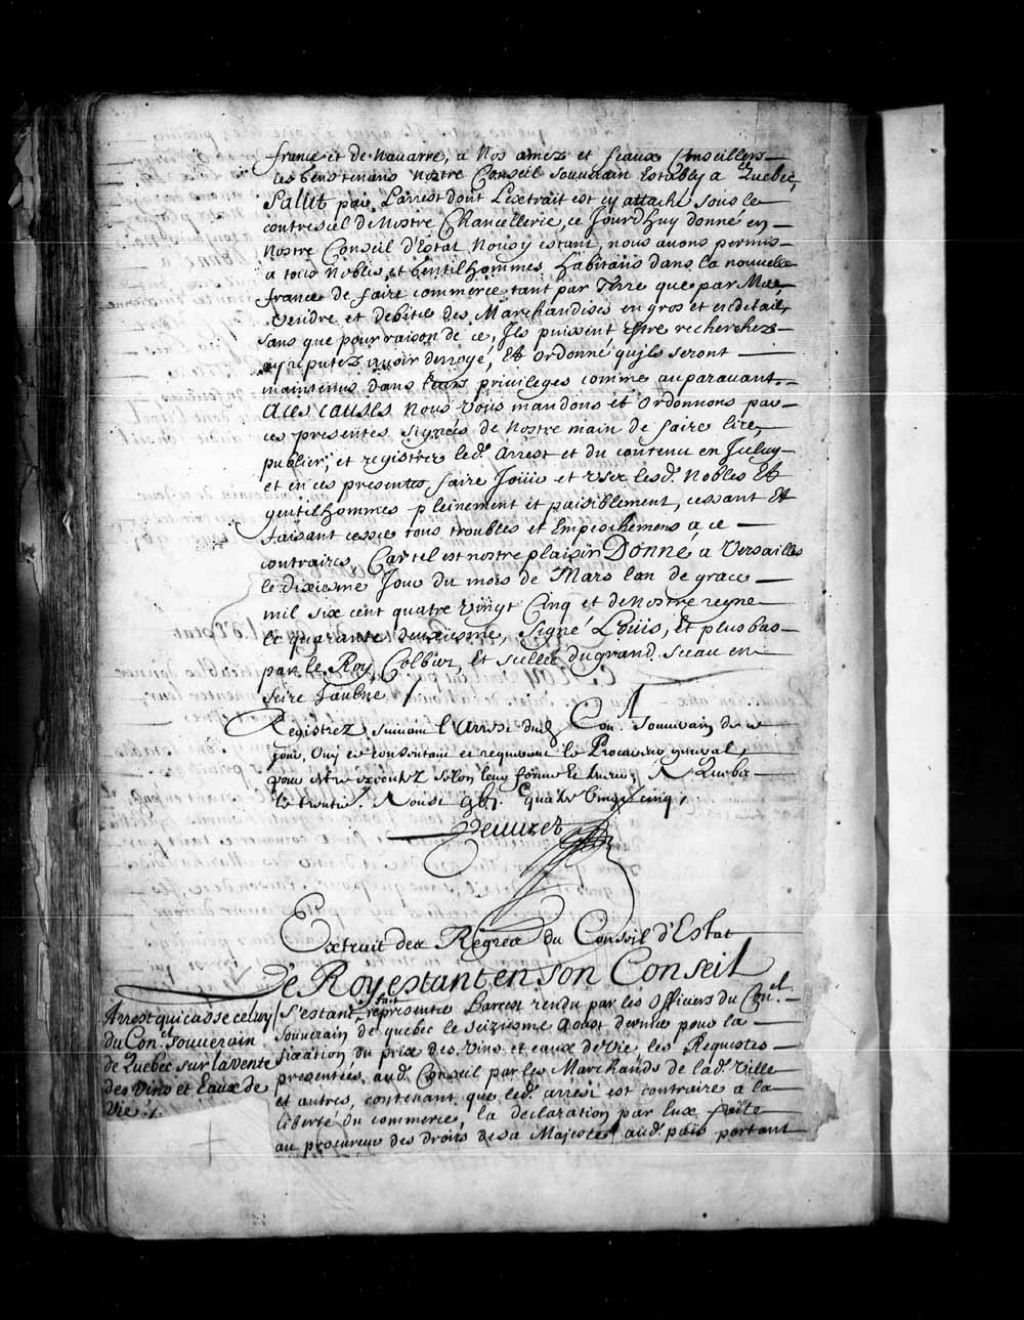 france et de Nauarre, a Nos amez et feaux Conseillers
les Gens tenans nostre Conseil Souuerain Estably a Quebec,
Salut par L'arrest dont L'extrait est cy attaché sous le
contrescel de Nostre Chancellerie, ce Jourd'huy donné en
Nostre Conseil d'Estat Nous y estant, nous auons permis
a tous Nobles, et Gentilhommes habitans dans la nouuelle
france de faire commerce tant par Terre que par Mer
Vendre et debiter des Marchandises en gros et en detail,
sans que pour raison de ce, Ils puissent estre recherchez
ny reputez auoir derrogé, Et ordonné qu'ils seront
maintenus dans leurs priuileges comme auparauant.
A CES CAUSES Nous Vous mandons et Ordonnons par
ces presentes signées de Nostre main de faire lire,
publier, et registrer led. Arrest et du contenu en Iceluy
et en ces presentes, faire Jouir et vser lesd. Nobles Et
gentilhommes pleinement et paisiblement, cessant Et
faisant cesser tous troubles et Empeschemens a ce
contraires, Car tel est nostre plaisir Donné a Versailles
le dixiesme Jour du mois de Mars l'an de grace
mil six cent quatre vingt Cinq et de Nostre regne
le quarante deuxiesme, Signé Loüis, Et plus bas
par le Roy, Colbert, Et scellé du grand sceau en
Cire Jaulne /
Registrez suiuant l'Arrest dud. Con.el Souuerain de ce
jour, Ouy ce consentant et requerant le Procureur general,
pour estre executez selon leur forme et teneur, A Quebec
le trentie. Aoust gbj.c Quatre Vingt cinq,
Peuuret
Extrait des Regres du Conseil d'Estat
Le Roy estant en son Conseil
Arrest qui casse celuy
du Con.el Souuerain
de Quebec sur la vente
des Vins et Eaux de
Vie ./.
S'estant fait representer L'arrest rendu par les Officiers du Con.el
Souuerain de quebec le seiziesme Aoust dernier pour la
fixation du prix des Vins et eaux de Vie, les Requestes
presentées aud. Conseil par les Marchands de lad. Ville
et autres, contenant que led. arrest est contraire a la
liberté du commerce, la declaration par eux faite
au procureur des droits de sa Majesté aud. pais portant